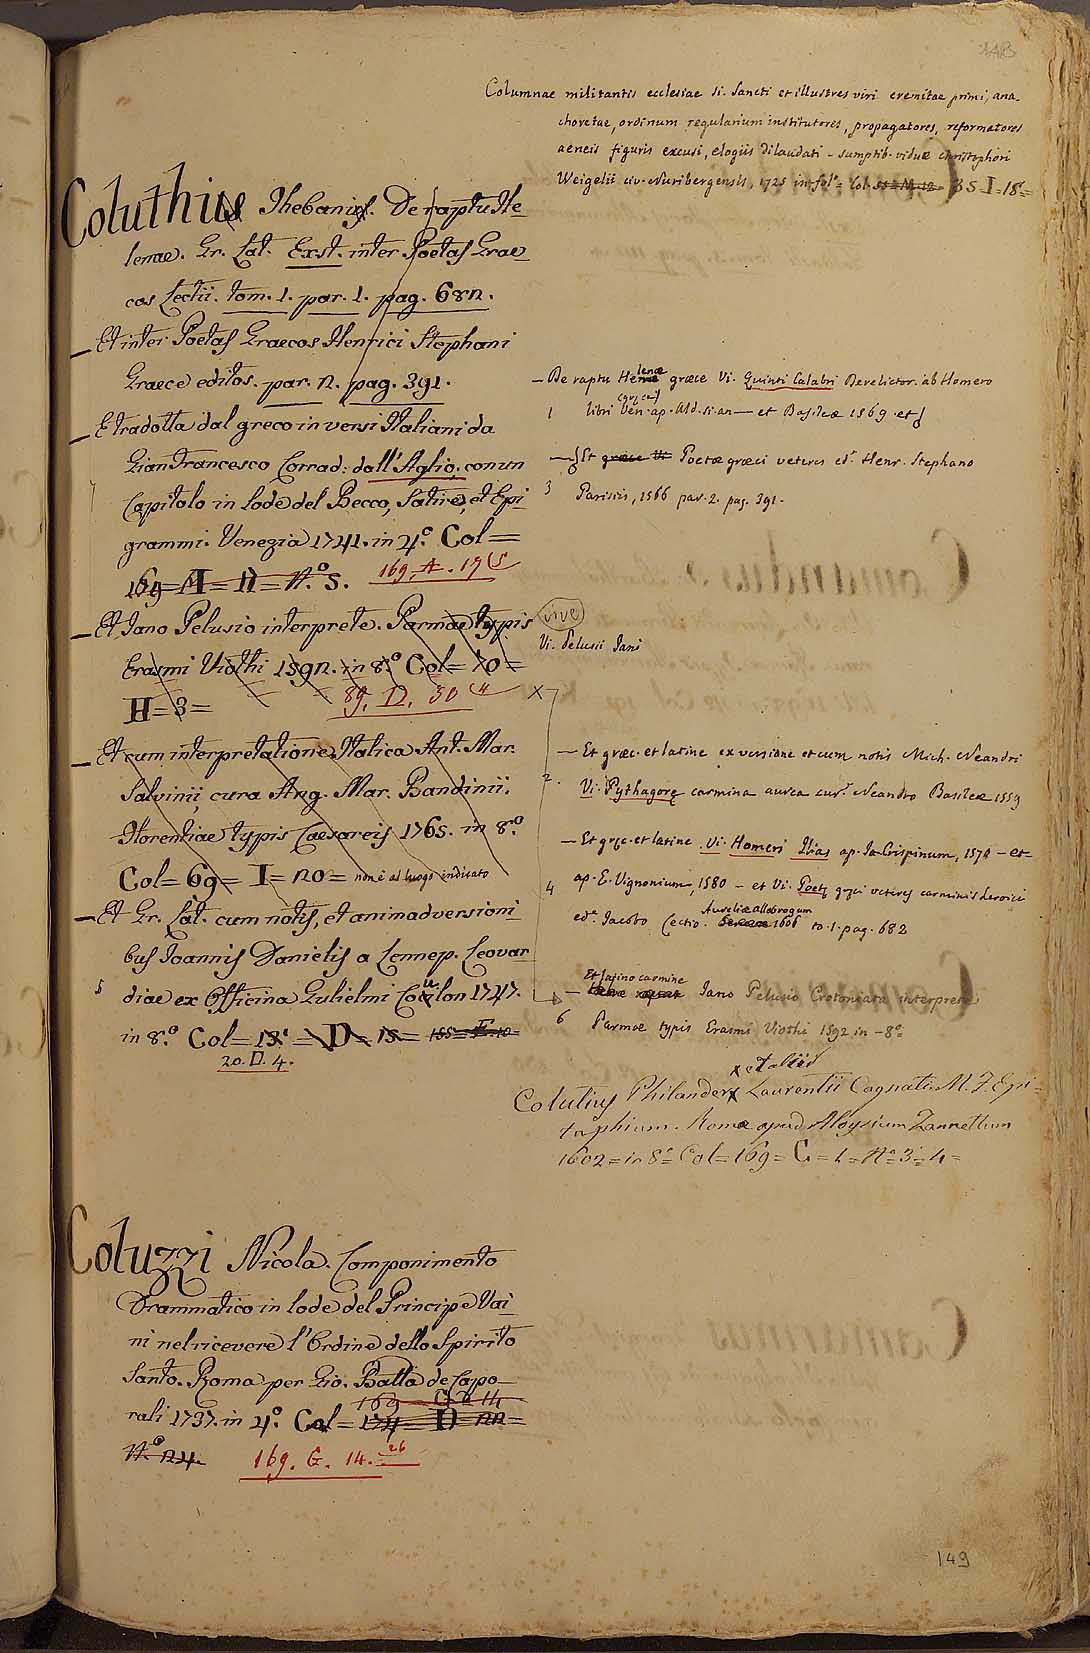 148
Columnae militantis ecclesiae si. Sancti et illustres viri eremitae primi, ana-
choretae, ordinum regularium institutores, propagatores, reformatores
aeneis figuris excusi, elogiis dilaudati - sumptib. viduæ christophori
Weigelii civ. Nuribergensis, 1725 in fol.º Col. 35 = I = 18 =
Coluthius Thebanius. De raptu He-
lenae. Gr. Lat. Exst. inter Poetas Grae
cos Lectii. tom. 1. par. 1. pag. 682.
_ Et inter Poetas Graecos Henrici Stephani
Graece editos. par. 2. pag. 391.
_ E tradotta dal greco in versi Italiani da
Gian Francesco Corrad: dall'Aglio, con un
Capitolo in lode del Becco, Satire, et Epi
grammi. Venezia 1741. in 4.º Col =
169 = A = 17 = N.º 5. 169. A. 17 (5
_ Et Iano Pelusio interprete. Parmae typis
Erasmi Viothi 1592. in 8.º Col = 70 =
H = 3 = 89. D. 30 (4
_ Et cum interpretatione Italica Ant. Mar.
Salvinii cura Ang. Mar. Bandinii.
Florentiae typis Caesareis 1765. in 8.º
Col = 69 = I = 20 = non è al luogo indicato
_ Et Gr. Lat. cum notis, et animadversioni
bus Joannis Danielis a Lennep. Leovar
5 diae ex Officina Gulielmi Coulon 1747.
in 8.º Col = 13. = D = 15 =
20. D. 4.
— De raptu Helenæ græce Vi. Quinti Calabri Derelictor. ab Homero
1 libri ap. Ald. si. an — et Basileæ 1569 et
— Et Poetæ græci veteres ed. Henr. Stephano
3 Parisiis, 1566 par. 2. pag. 391.
vive
Vi. Pelusii Jani
X
— Et græc. et latine ex versione et cum notis Mich. Neandri
2. Vi. Pythagoræ carmina aurea cur. Neandro Basileæ 1559
— Et græc. et latine Vi. Homeri Ilias ap. Ja. Crispinum, 1570 - et
4 ap. E. Vignonium, 1580 - et Vi. Poetæ græci veteres carminis heroici
ed. Jacobo Lectio. Aureliæ allobrogum 1606 to. 1. pag. 682
Et latino carmine
— Iano Pelusio Crotoniata interprete
6 Parmæ typis Erasmi Viothi 1592 in - 8.º
x et aliis
Colutius Philander x Laurentii Cagnati M. F. Epi =
taphium. Romæ apud Aloysium Zannettum
1602 = in 8.º Col = 169 = C = 1 = N.º 3 = 4 =
Coluzzi Nicola. Componimento
Drammatico in lode del Principe Vai
ni nel ricevere l'Ordine dello Spirito
Santo. Roma per Gio. Batta de Capo
169 G = 14
rali 1737. in 4.º Col = 174 = D = 22 =
N.º 24. 169. G. 14. 26
149